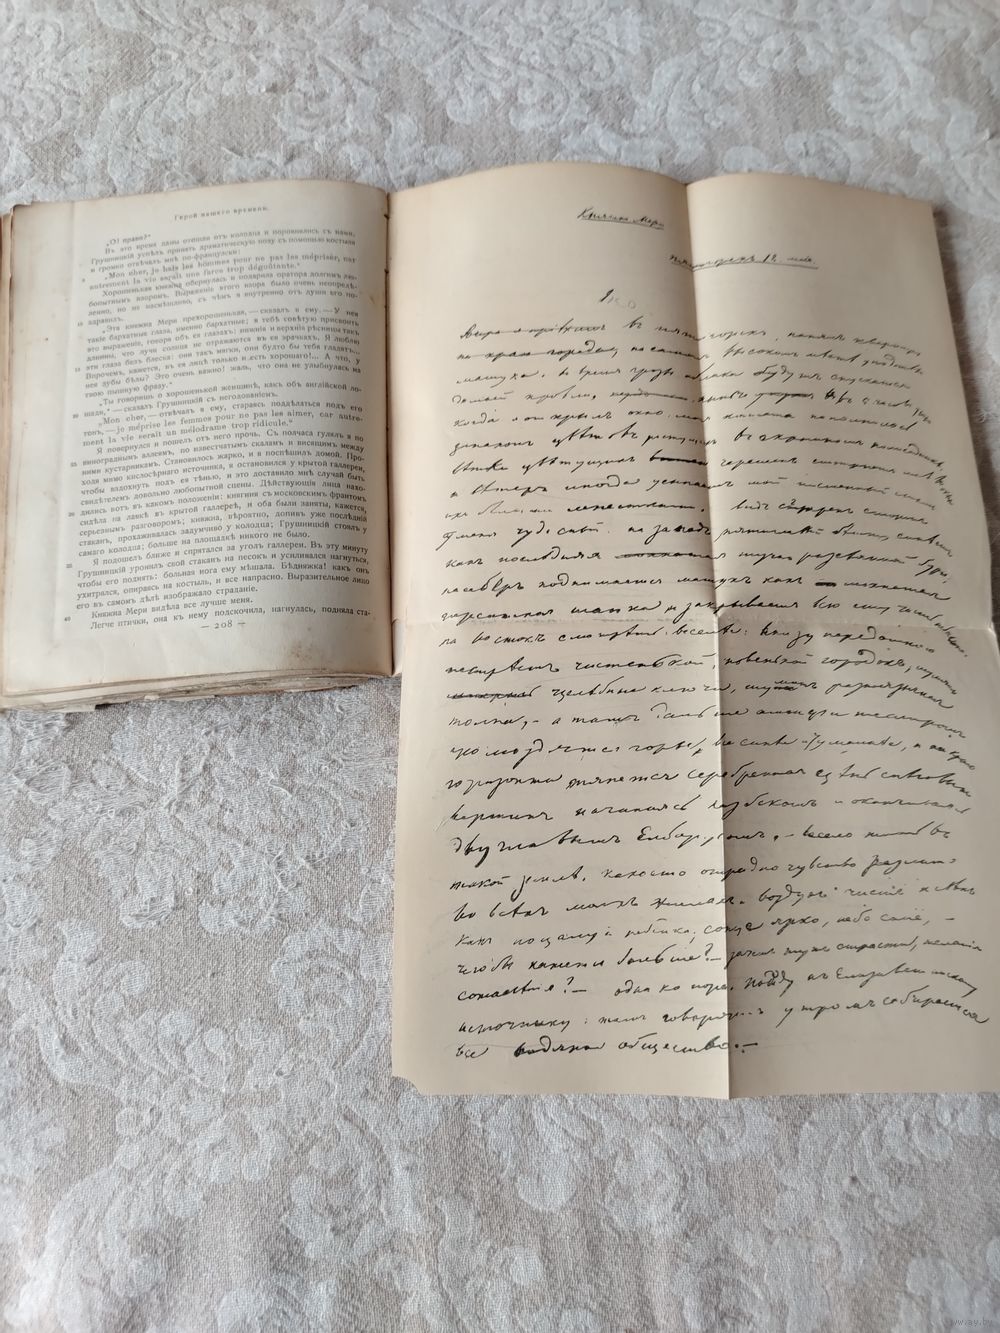 Герой нашего времени.
„О! право?“
Въ это время дамы отошли отъ колодца и поровнялись съ нами.
Грушницкій успѣлъ принять драматическую позу съ помощью костыля
и громко отвѣчалъ мнѣ по-французски:
„Mon cher, je haïs les hommes pour ne pas les mépriser, car
autrement la vie serait une farce trop dégoûtante.“
Хорошенькая княжна обернулась и подарила оратора долгимъ лю-
бопытнымъ взоромъ. Выраженіе этого взора было очень неопредѣ-
ленно, но не насмѣшливо, съ чѣмъ я внутренно отъ души его по-
10 здравилъ.
„Эта княжна Мери прехорошенькая,—сказалъ я ему.—У нея
такіе бархатные глаза, именно бархатные: я тебѣ совѣтую присвоить
это выраженіе, говоря объ ея глазахъ; нижнія и верхнія рѣсницы такъ
длинны, что лучи солнца не отражаются въ ея зрачкахъ. Я люблю
15 эти глаза безъ блеска: они такъ мягки, они будто бы тебя гладятъ...
Впрочемъ, кажется, въ ея лицѣ только и есть хорошаго!... А что, у
нея зубы бѣлы? Это очень важно! жаль, что она не улыбнулась на
твою пышную фразу.“
„Ты говоришь о хорошенькой женщинѣ, какъ объ англійской ло-
20 шади,“—сказалъ Грушницкій съ негодованіемъ.
„Mon cher,—отвѣчалъ я ему, стараясь поддѣлаться подъ его
тонъ,—je méprise les femmes pour ne pas les aimer, car autre-
ment la vie serait un mélodrame trop ridicule.“
Я повернулся и пошелъ отъ него прочь. Съ полчаса гулялъ я по
25 винограднымъ аллеямъ, по известчатымъ скаламъ и висящимъ между
ними кустарникамъ. Становилось жарко, и я поспѣшилъ домой. Про-
ходя мимо кислосѣрнаго источника, я остановился у крытой галлереи,
чтобы вздохнуть подъ ея тѣнью, и это доставило мнѣ случай быть
свидѣтелемъ довольно любопытной сцены. Дѣйствующія лица нахо-
30 дились вотъ въ какомъ положеніи: княгиня съ московскимъ франтомъ
сидѣла на лавкѣ въ крытой галлереѣ, и оба были заняты, кажется,
серьезнымъ разговоромъ; княжна, вѣроятно, допивъ ужъ послѣдній
стаканъ, прохаживалась задумчиво у колодца; Грушницкій стоялъ у
самаго колодца; больше на площадкѣ никого не было.
35 Я подошелъ ближе и спрятался за уголъ галлереи. Въ эту минуту
Грушницкій уронилъ свой стаканъ на песокъ и усиливался нагнуться,
чтобы его поднять: больная нога ему мѣшала. Бѣдняжка! какъ онъ
ухитрялся, опираясь на костыль, и все напрасно. Выразительное лицо
его въ самомъ дѣлѣ изображало страданіе.
40 Княжна Мери видѣла все лучше меня.
Легче птички, она къ нему подскочила, нагнулась, подняла ста-
— 208 —
Княжна Мери
пятигорскъ 12. мая.
Вчера я пріѣхалъ въ пятигорскъ нанялъ квартиру
на краю города, на самомъ высокомъ мѣстѣ у подошвы
машука. Во время грозы облака будутъ спускаться
до моей кровли. нынче въ 5 часовъ утра
когда я открылъ окно, моя комната наполнилась
запахомъ цвѣтовъ растущихъ въ скромномъ палисадникѣ.
Вѣтки цвѣтущихъ черешень смотрятъ мнѣ въ окна
и вѣтеръ иногда усыпаетъ мой письменный столъ
ихъ бѣлыми лепестками. Видъ съ трехъ сторонъ
у меня чудесный. на западъ пятиглавый бешту синѣетъ
какъ послѣдняя туча разсѣянной бури,
на сѣверъ поднимается машукъ какъ мохнатая
персидская шапка и закрываетъ всю эту часть небосклона.
на востокъ смотрѣть веселѣе: внизу передо мною
пестрѣетъ чистенькой, новенькой городокъ, шумятъ
цѣлебные ключи, шумитъ разноязычная
толпа,—а тамъ дальше амфитеатромъ
громоздятся горы, все синѣе и туманнѣе, а на краю
горизонта тянется серебренная цѣпь снѣговыхъ
вершинъ начинаясь казбекомъ и оканчиваясь
двуглавымъ Елборусомъ.—весело жить въ
такой землѣ. какое-то отрадно чувство разлито
во всѣхъ моихъ жилахъ. воздухъ чистъ и свѣжъ
какъ поцалуй ребенка, солнце ярко, небо сине,—
чего бы кажется больше?—зачѣмъ тутъ страсти, желанія
сожалѣнія?— однако пора. пойду къ Елизаветинскому
источнику: тамъ говорятъ утромъ собирается
все водяное общество.—